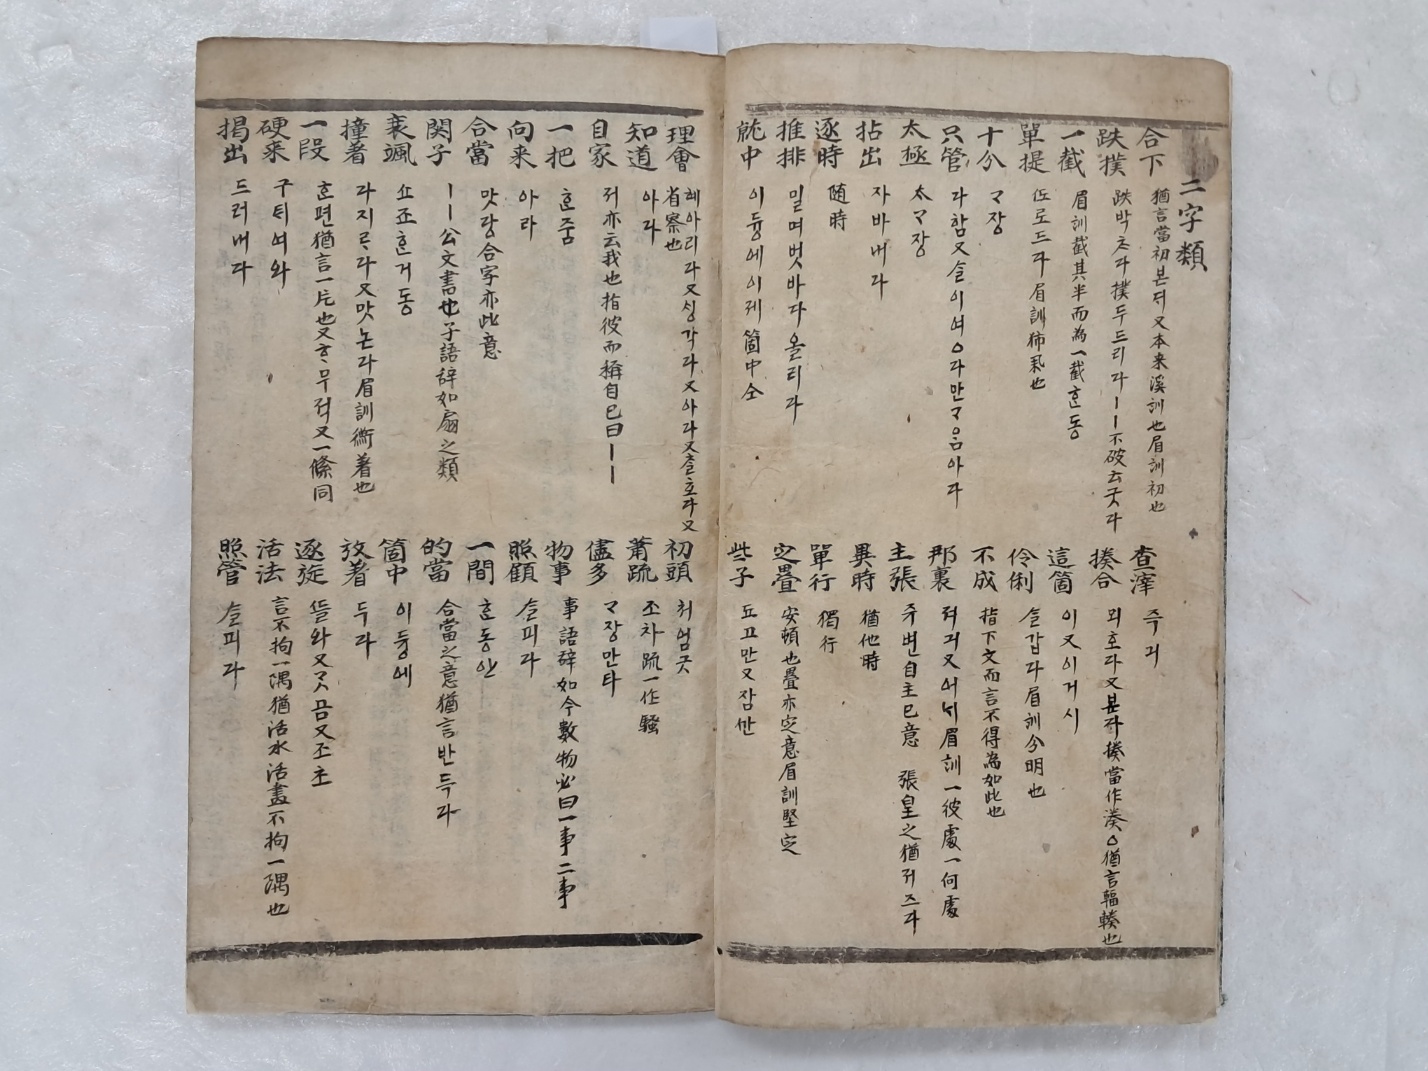 二字類
合下 猶言當初 본저 又本来 溪訓也 眉訓初也
査滓 즉긔
跌撲 跌박츠다 撲두드리다 ㅣㅣ不破 云긋다
揍合 외호다 又본자 揍當作湊 ○猶言輻輳也
一截 眉訓截其半而為一截 ᄒᆞᆫ동
這箇 이 又이거시
單提 로드다 眉訓
伶俐 ᄉᆞᆯ갑다 眉訓分明也
十分 ᄀᆞ장
不成 指下文而言不得為如此也
只管 다함 又ᄉᆞᆯ이여 ○다만ᄀᆞ음아다
那裏 져긔 又어ᄂᆡ 眉訓一彼處一何處
太極 太ᄀᆞ장
主張 쥬변 自主已意 張皇之猶거즈다
拈出 자바내다
異時 猶他時
逐時 随時
單行 獨行
推排 밀며벗바다올리다
定疊 安頓也 疊亦定意 眉訓堅定
就中 이듕에이제 箇中仝
些子 됴고만 又잠깐
理會 헤아리다 又ᄉᆡᆼ각다 又아다 又출호다 又省察也
初頭 처엄긋
知道 아다
蕭疏 조차 疏一作騷
自家 저 亦云我也 指彼而稱自己曰ㅣㅣ
儘多 ᄀᆞ장만타
一把 ᄒᆞᆫ줌
物事 事語辞 如今數物必曰一事二事
向来 아라
照顧 ᄉᆞᆯ피다
合當 맛당 合字亦此意
一間 ᄒᆞᆫ동안
関子 ㅣㅣ公文書也 子語辞如扇之類
的當 合當之意 猶言반득다
衮颯 쇼죠ᄒᆞᆫ거동
箇中 이듕에
撞着 다지르다 又맛ᄂᆞᆫ다 眉訓衝着也
放着 두다
一段 ᄒᆞᆫ편 猶言一片也 又ᄒᆞᆫ무적 又一條同
逐旋 ᄯᆞᆯ와 又ᄀᆞᆺ곰 又조초
硬来 구틔여와
活法 言不拘一隅 猶活水活畫 不拘一隅也
掲出 드러내다
照管 ᄉᆞᆯ피다